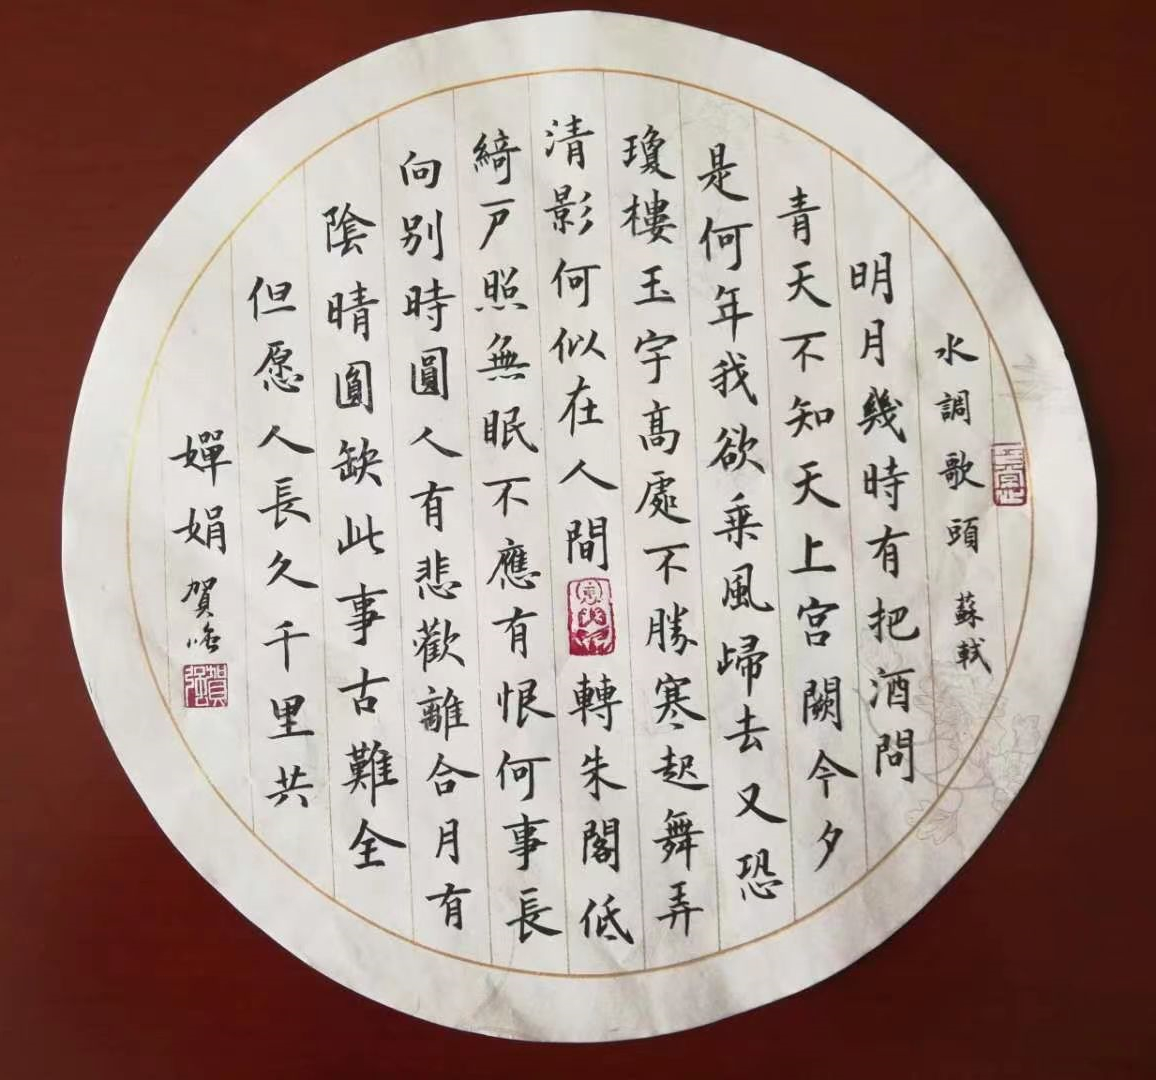 水調歌頭 蘇軾
明月幾時有把酒問
青天不知天上宮闕今夕
是何年我欲乗風歸去又恐
瓊樓玉宇高處不勝寒起舞弄
清影何似在人間轉朱閣低
綺戸照無眠不應有恨何事長
向别時圓人有悲歡離合月有
陰晴圓缺此事古難全
但愿人長久千里共
嬋娟 賀